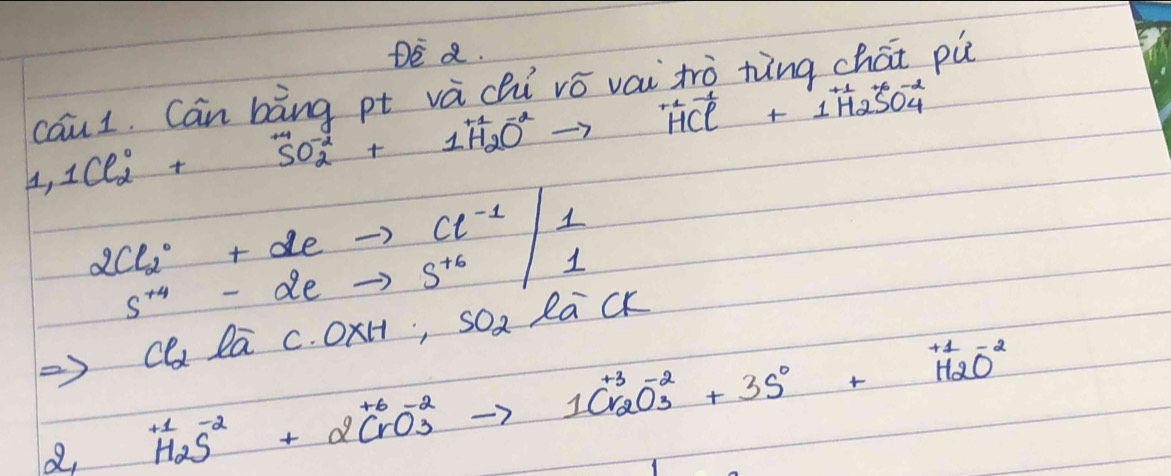 Đề 2.
Câu 1. Cân bằng pt và chỉ rõ vai trò từng chất pứ
1, 1Cl₂⁰ + S⁺⁴O₂⁻² + 1H₂⁺¹O⁻² → H⁺¹Cl⁻¹ + 1H₂⁺¹S⁺⁶O₄⁻²
2Cl₂⁰ + 2e → Cl⁻¹ | 1
S⁺⁴ - 2e → S⁺⁶ | 1
=> Cl₂ là c.OXH ; SO₂ là CK
2, H₂⁺¹S⁻² + 2Cr⁺⁶O₃⁻² → 1Cr₂⁺³O₃⁻² + 3S⁰ + H₂⁺¹O⁻²